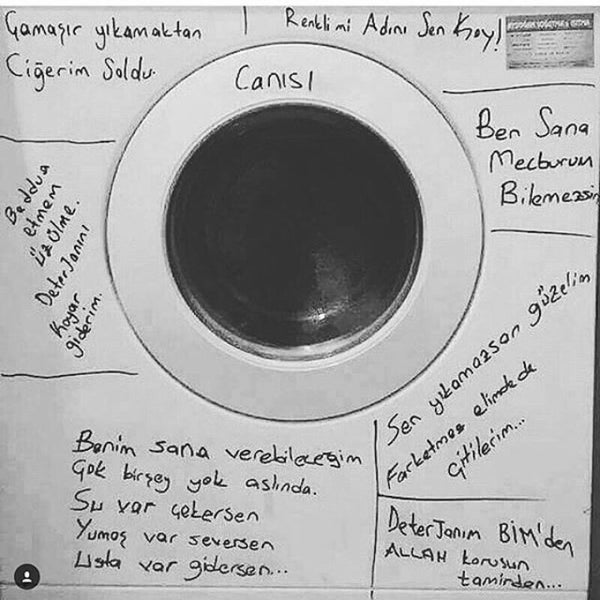 Çamaşır yıkamaktan
Ciğerim Soldu.
Renklimi Adını Sen Koy!
Canısı
Ben Sana
Mecburum
Bilemezsin
Beddua
etmem
üzülme.
Deterjanını
Koyar
giderim.
Sen yıkamazsan güzelim
Farketmez elimdede
Çitilerim...
Benim sana verebileceğim
Çok birşey yok aslında.
Su var çekersen
Yumoş var seversen
Usta var gidersen...
Deterjanım BİM'den
ALLAH korusun
tamirden...